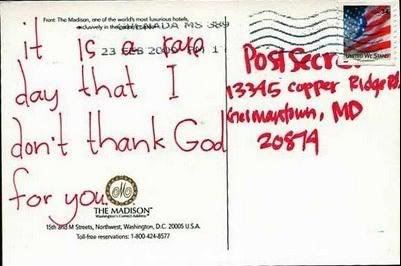 Front: The Madison, one of the world's most luxurious hotels,
exclusively in the
MS 389
23 FEB 2005 PM 1
UNITED WE STAND
it is a rare
day that I
don't thank God
for you.
PostSecret
13345 Copper Ridge Rd
Germantown, MD
20874
M
THE MADISON
Washington's Correct Address
15th and M Streets, Northwest, Washington, D.C. 20005 U.S.A.
Toll-free reservations: 1-800-424-8577